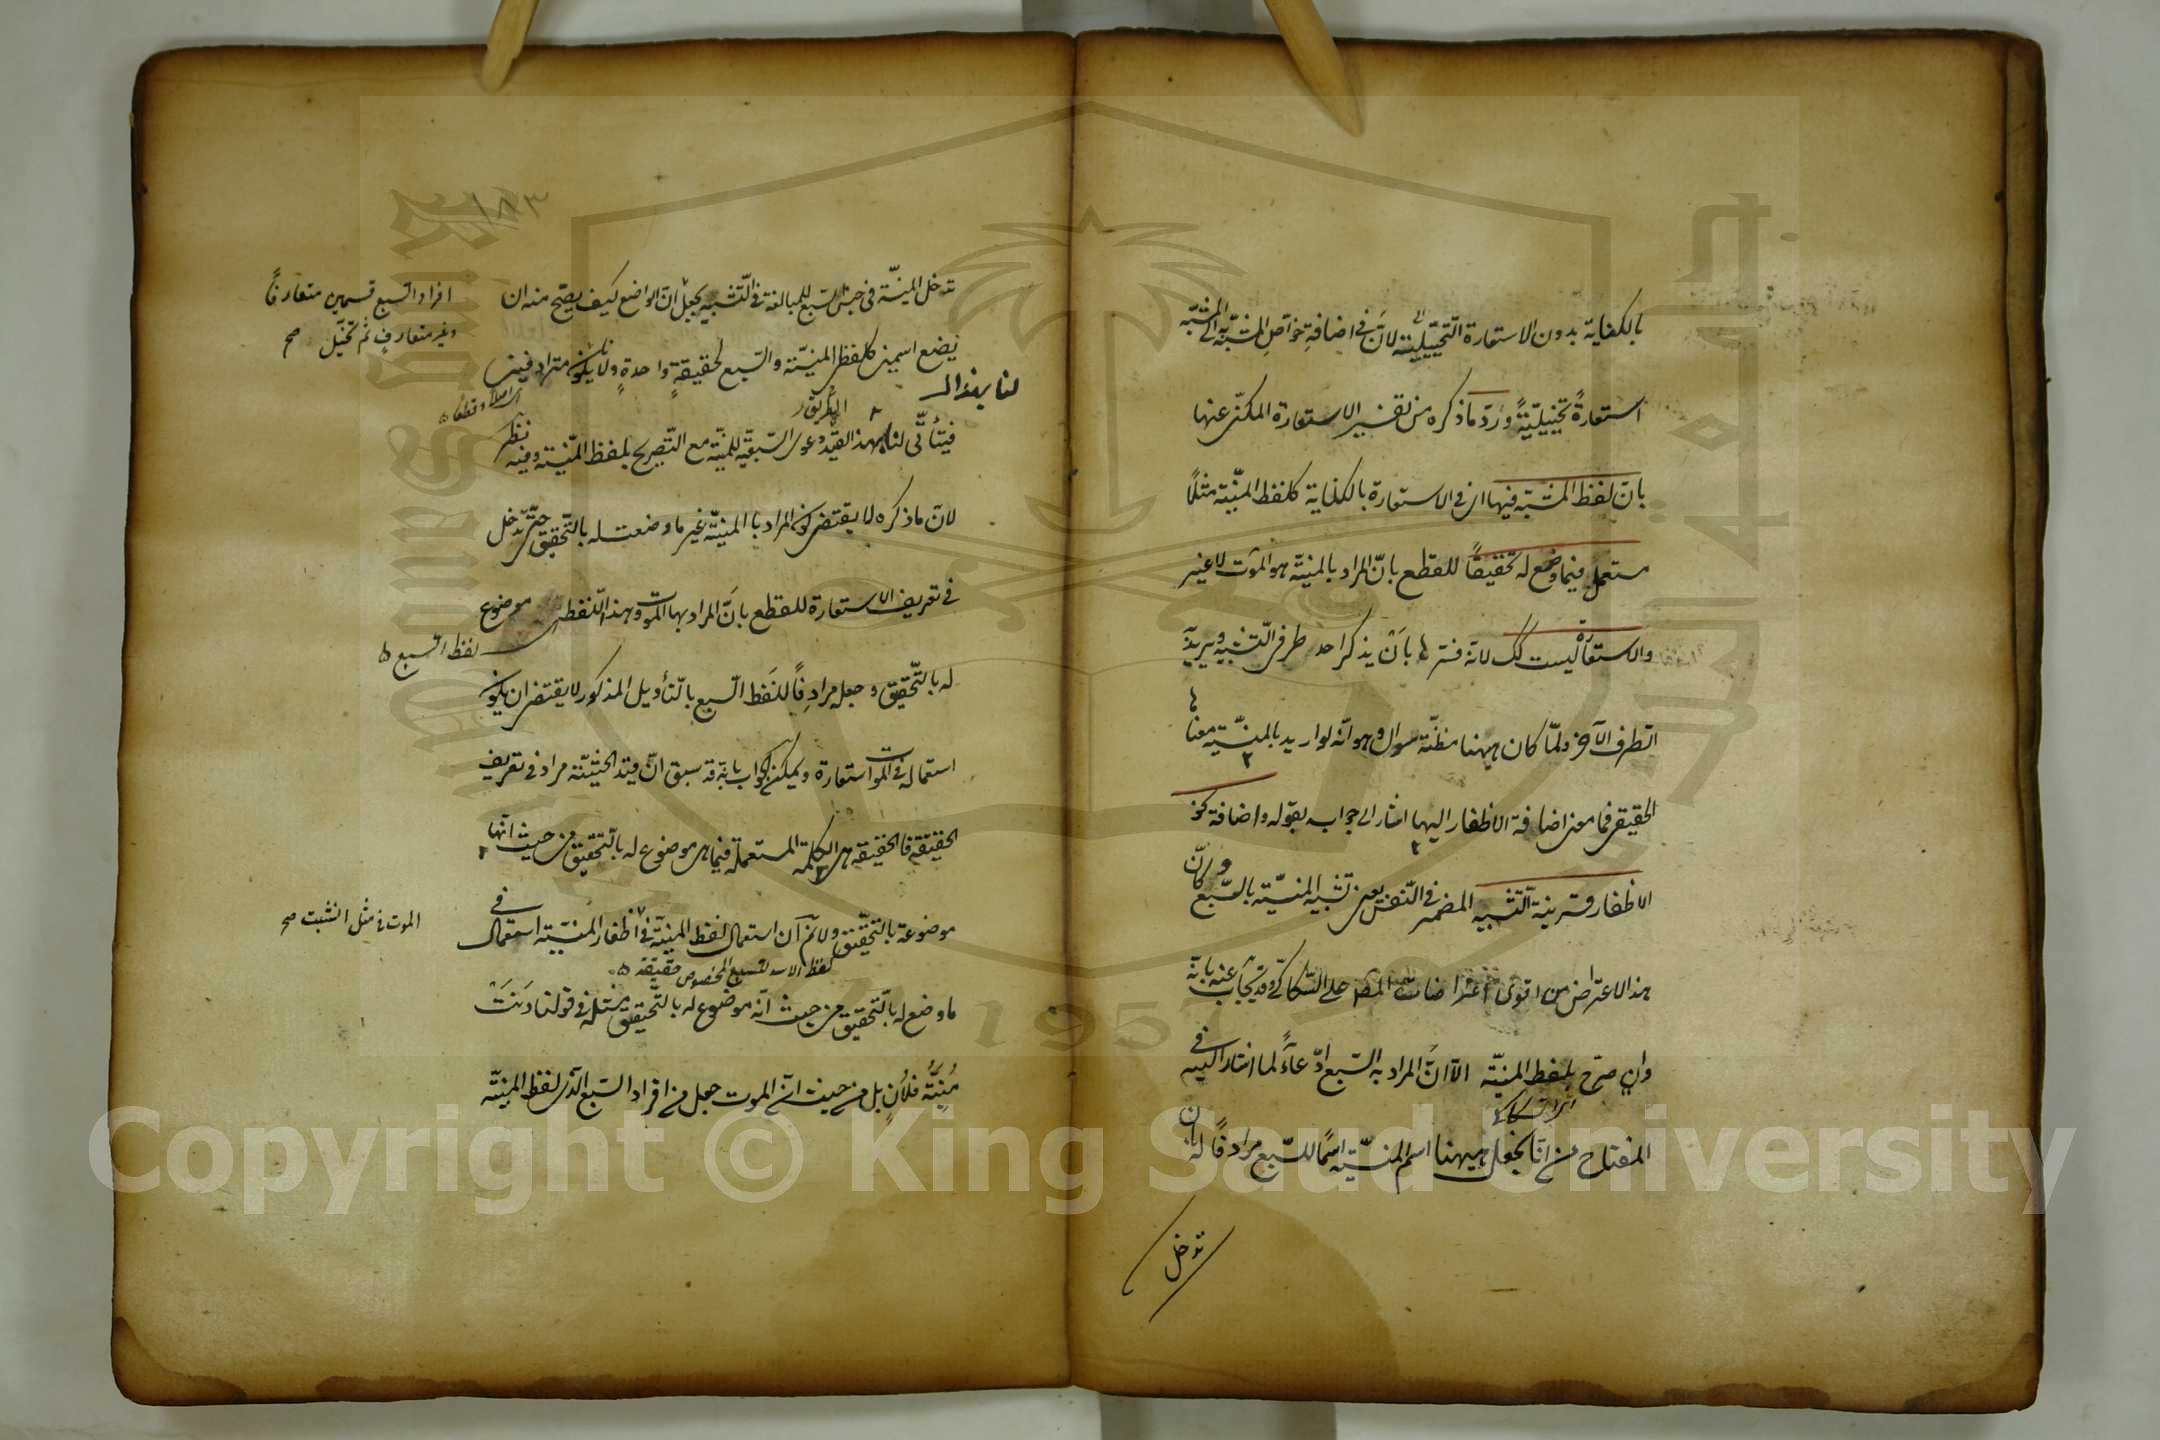 بالكناية بدون الاستعارة التخييلية لان في اضافة خواص المشبه به الى المشبه
استعارةً تخييليّةً وردّ ما ذكره من تفسير الاستعارة المكنّى عنها
بانّ لفظ المشبّه فيها اى فى الاستعارة بالكناية كلفظ المنيّة مثلاً
مستعمل فيما وضع له تحقيقاً للقطع بانّ المراد بالمنيّة هو الموت لا غير
والاستعارة ليست كك لانه فسّرها بان يذكر احد طرفى التشبيه ويريد به
الطرف الآخر ولمّا كان ههنا مظنّة سوال وهو انّه لو اريد بالمنيّة معناها
الحقيقى فما معنى اضافة الاظفار اليها اشار الى جوابه بقوله واضافة نحو
الاظفار قرينة التشبيه المضمر فى النفس يعنى تشبيه المنيّة بالسّبع وكانّ
هذا الاعتراض من اقوى اعتراضات المص على السّكاكى وقد يجاب عنه بانّه
وان صرّح بلفظ المنيّة الّا انّ المراد به السّبع ادّعاءً لما اشار اليه فى
المفتاح من انّا نجعل ههنا اسم المنيّة اسمًا للسّبع مرادفًا له بان
تدخل
١٨٣
تدخل المنيّة فى جنس السّبع للمبالغة فى التّشبيه بجعل
افراد السّبع قسمين متعارفًا
وغير متعارفٍ ثم تخيّل صح
انّ الواضع كيف يصحّ منه ان
يضع اسمين كلفظى المنيّة والسّبع لحقيقةٍ واحدةٍ ولا يكونان مترادفين
لنا بهذا
الطريق
فيتأتّى لنا بهذا دعوى السّبعيّة للمنيّة مع التّصريح بلفظ المنيّة وفيه نظر
لانّ ما ذكره لا يقتضى كون المراد بالمنيّة غير ما وضعت له بالتّحقيق حتّى يدخل
فى تعريف الاستعارة للقطع بانّ المراد بها الموت وهذا اللّفظ موضوع
لفظ السبع
له بالتّحقيق وجعله مرادفًا للفظ السّبع بالتّأويل المذكور لا يقتضى ان يكون
استعماله فى الموت استعارة ويمكن الجواب بانّه قد سبق انّ قيد الحيثيّة مراد فى تعريف
الحقيقة فالحقيقة هى الكلمة المستعملة فيما هى موضوع له بالتّحقيق من حيث انّها
موضوعة بالتّحقيق ولا نم ان استعمال لفظ المنيّة فى
الموت فى مثل انشبت صح
اظفار المنيّة استعمال فى
لفظ الاسد للسبع المخصوص حقيقة
ما وضع له بالتّحقيق من حيث انّه موضوع له بالتّحقيق مثله فى قولنا دنت
منيّة فلانٍ بل من حيث انّ الموت جعل من افراد السّبع الّذى لفظ المنيّة
Copyright © King Saud University
King Saud University
1957